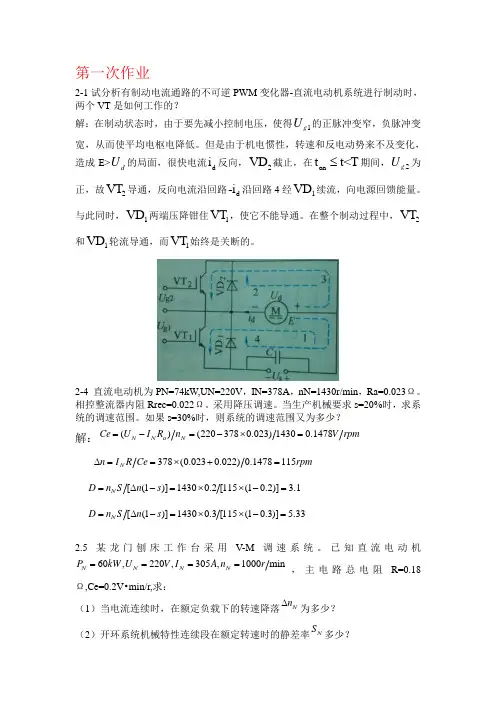 第一次作业
2-1试分析有制动电流通路的不可逆PWM变化器-直流电动机系统进行制动时，
两个VT是如何工作的？
解：在制动状态时，由于要先减小控制电压，使得U_{g1}的正脉冲变窄，负脉冲变
宽，从而使平均电枢电降低。但是由于机电惯性，转速和反电动势来不及变化，
造成E>U_d的局面，很快电流i_d反向，VD_2截止，在t_{on}≤t<T期间，U_{g2}为
正，故VT_2导通，反向电流沿回路-i_d沿回路4经VD_1续流，向电源回馈能量。
与此同时，VD_1两端压降钳住VT_1，使它不能导通。在整个制动过程中，VT_2
和VD_1轮流导通，而VT_1始终是关断的。
VT_2 VD_2 3
U_{g2} 2 U_d
- M +
i_d E
U_{g1} VT_1 VD_1 4 1
C
- U_s +
2-4 直流电动机为PN=74kW,UN=220V，IN=378A，nN=1430r/min，Ra=0.023Ω。
相控整流器内阻Rrec=0.022Ω。采用降压调速。当生产机械要求s=20%时，求系
统的调速范围。如果s=30%时，则系统的调速范围又为多少？
解：Ce=(U_N-I_NR_a)/n_N=(220-378×0.023)/1430=0.1478V/rpm
Δn=I_NR/Ce=378×(0.023+0.022)/0.1478=115rpm
D=n_NS/[Δn(1-s)]=1430×0.2/[115×(1-0.2)]=3.1
D=n_NS/[Δn(1-s)]=1430×0.3/[115×(1-0.3)]=5.33
2.5 某龙门刨床工作台采用V-M调速系统。已知直流电动机
P_N=60kW,U_N=220V,I_N=305A,n_N=1000r/min，主电路总电阻R=0.18
Ω,Ce=0.2V•min/r,求：
（1）当电流连续时，在额定负载下的转速降落Δn_N为多少？
（2）开环系统机械特性连续段在额定转速时的静差率S_N多少？